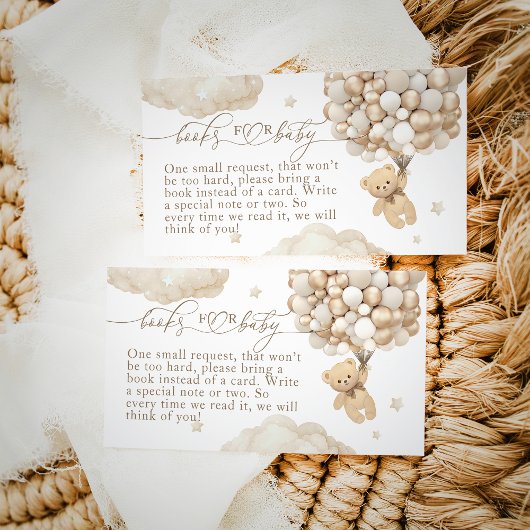 books FOR baby
One small request, that won't
be too hard, please bring a
book instead of a card. Write
a special note or two. So
every time we read it, we will
think of you!
books FOR baby
One small request, that won't
be too hard, please bring a
book instead of a card. Write
a special note or two. So
every time we read it, we will
think of you!